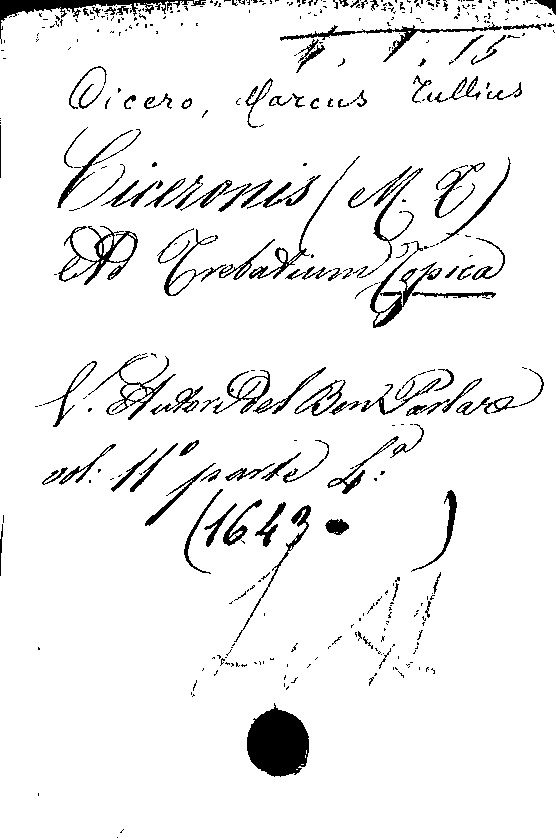 1. 1. 15
Cicero, Marcus Tullius
Ciceronis (M. T.)
Ad Trebatium Topica
V. Autori del Ben Parlare
vol: 11° parte 4.ª
(1643 )